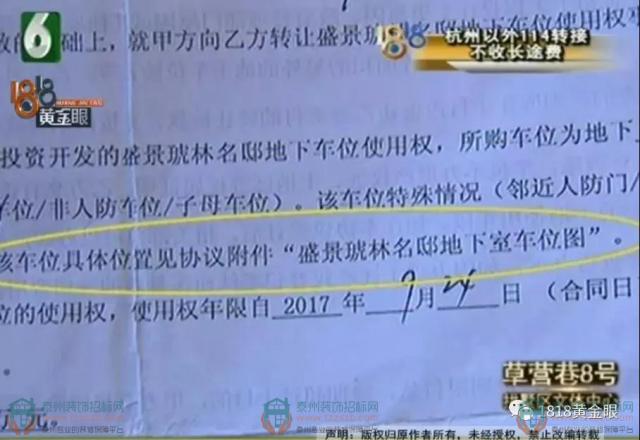 6
1818
黄金眼
杭州以外114转接
不收长途费
础上，就甲方向乙方转让盛景琥林名邸地下车位使用权
投资开发的盛景琥林名邸地下车位使用权，所购车位为地下
车位/非人防车位/子母车位）。该车位特殊情况（邻近人防门/
该车位具体位置见协议附件“盛景琥林名邸地下室车位图”。
位的使用权，使用权年限自 2017 年 9月 24 日（合同日
草营巷8号
1818黄金眼
泰州装饰招标网
泰州装饰招标网
泰州装饰招标网
声明：版权归原作者所有，未经授权，禁止改编转载